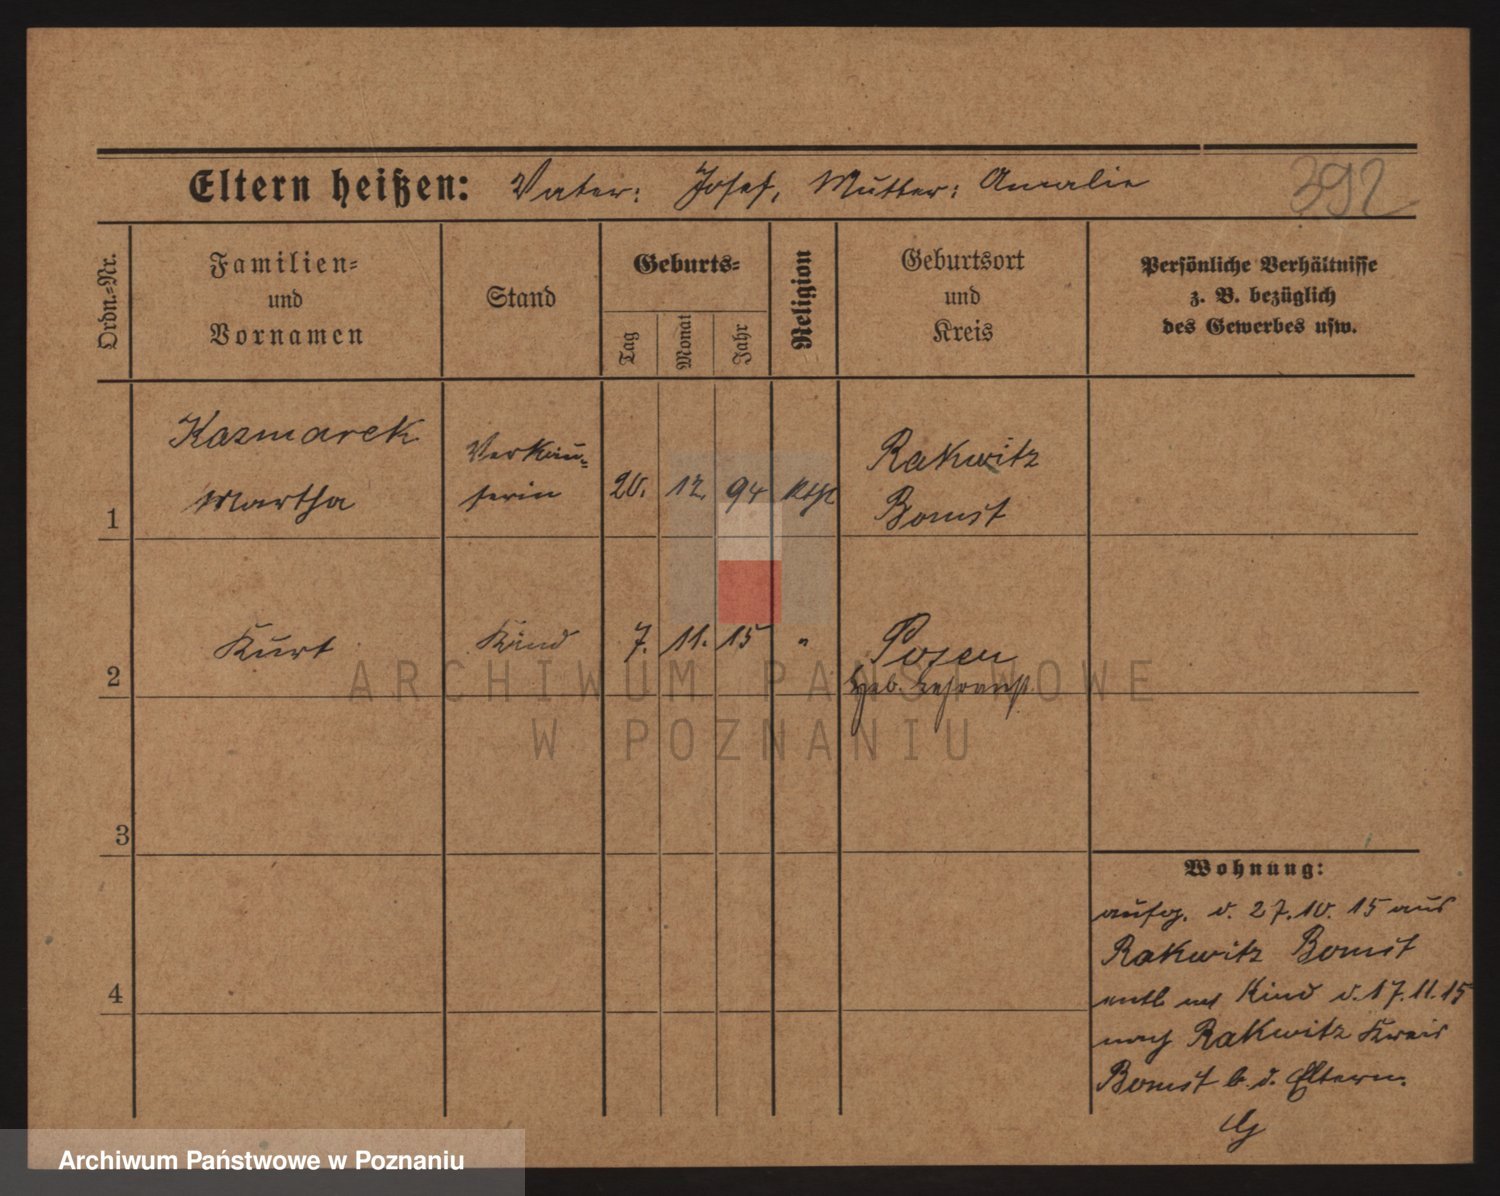 Eltern heißen: Vater: Josef, Mutter: Amalie
392
Ordn.=Nr.
Familien=
und
Vornamen
Stand
Geburts=
Tag
Monat
Jahr
Religion
Geburtsort
und
Kreis
Persönliche Verhältnisse
z. B. bezüglich
des Gewerbes usw.
1
Kazmarek
Martha
Verkäu=
ferin
20. 12. 94 kthl
Rakwitz
Bomst
2
Kurt
Kind
7. 11. 15 "
Posen
Heb. Lehranst.
3
4
Wohnung:
aufg. d. 27.10.15 aus
Rakwitz Bomst
entl mit Kind d. 17.11.15
nach Rakwitz Kreis
Bomst b. d. Eltern.
ARCHIWUM PAŃSTWOWE
W POZNANIU
Archiwum Państwowe w Poznaniu